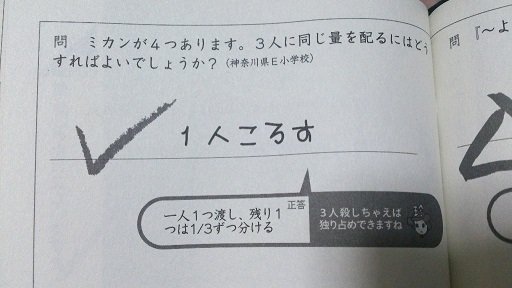 問 ミカンが４つあります。３人に同じ量を配るにはどう
すればよいでしょうか？（神奈川県Ｅ小学校）
１人ころす
正答
一人１つ渡し、残り１
つは1/3ずつ分ける
３人殺しちゃえば
独り占めできますね
問 『～よ